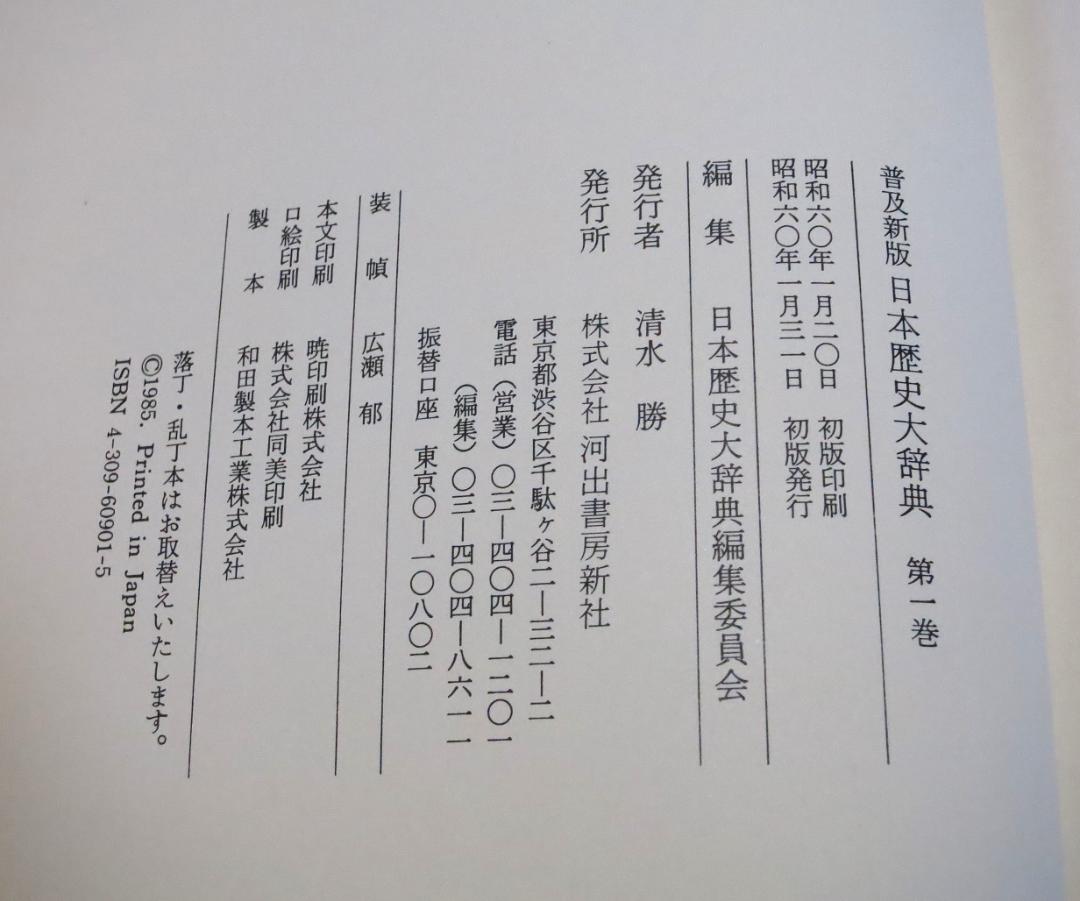 普及新版 日本歴史大辞典 第一巻
昭和六〇年一月二〇日 初版印刷
昭和六〇年一月三一日 初版発行
編集 日本歴史大辞典編集委員会
発行者 清水 勝
発行所 株式会社 河出書房新社
東京都渋谷区千駄ヶ谷二―三二―二
電話（営業）〇三―四〇四―一二〇一
（編集）〇三―四〇四―八六一一
振替口座 東京〇―一〇八〇二
装幀 広瀬 郁
本文印刷 暁印刷株式会社
口絵印刷 株式会社同美印刷
製本 和田製本工業株式会社
落丁・乱丁本はお取替えいたします。
©1985. Printed in Japan
ISBN 4-309-60901-5